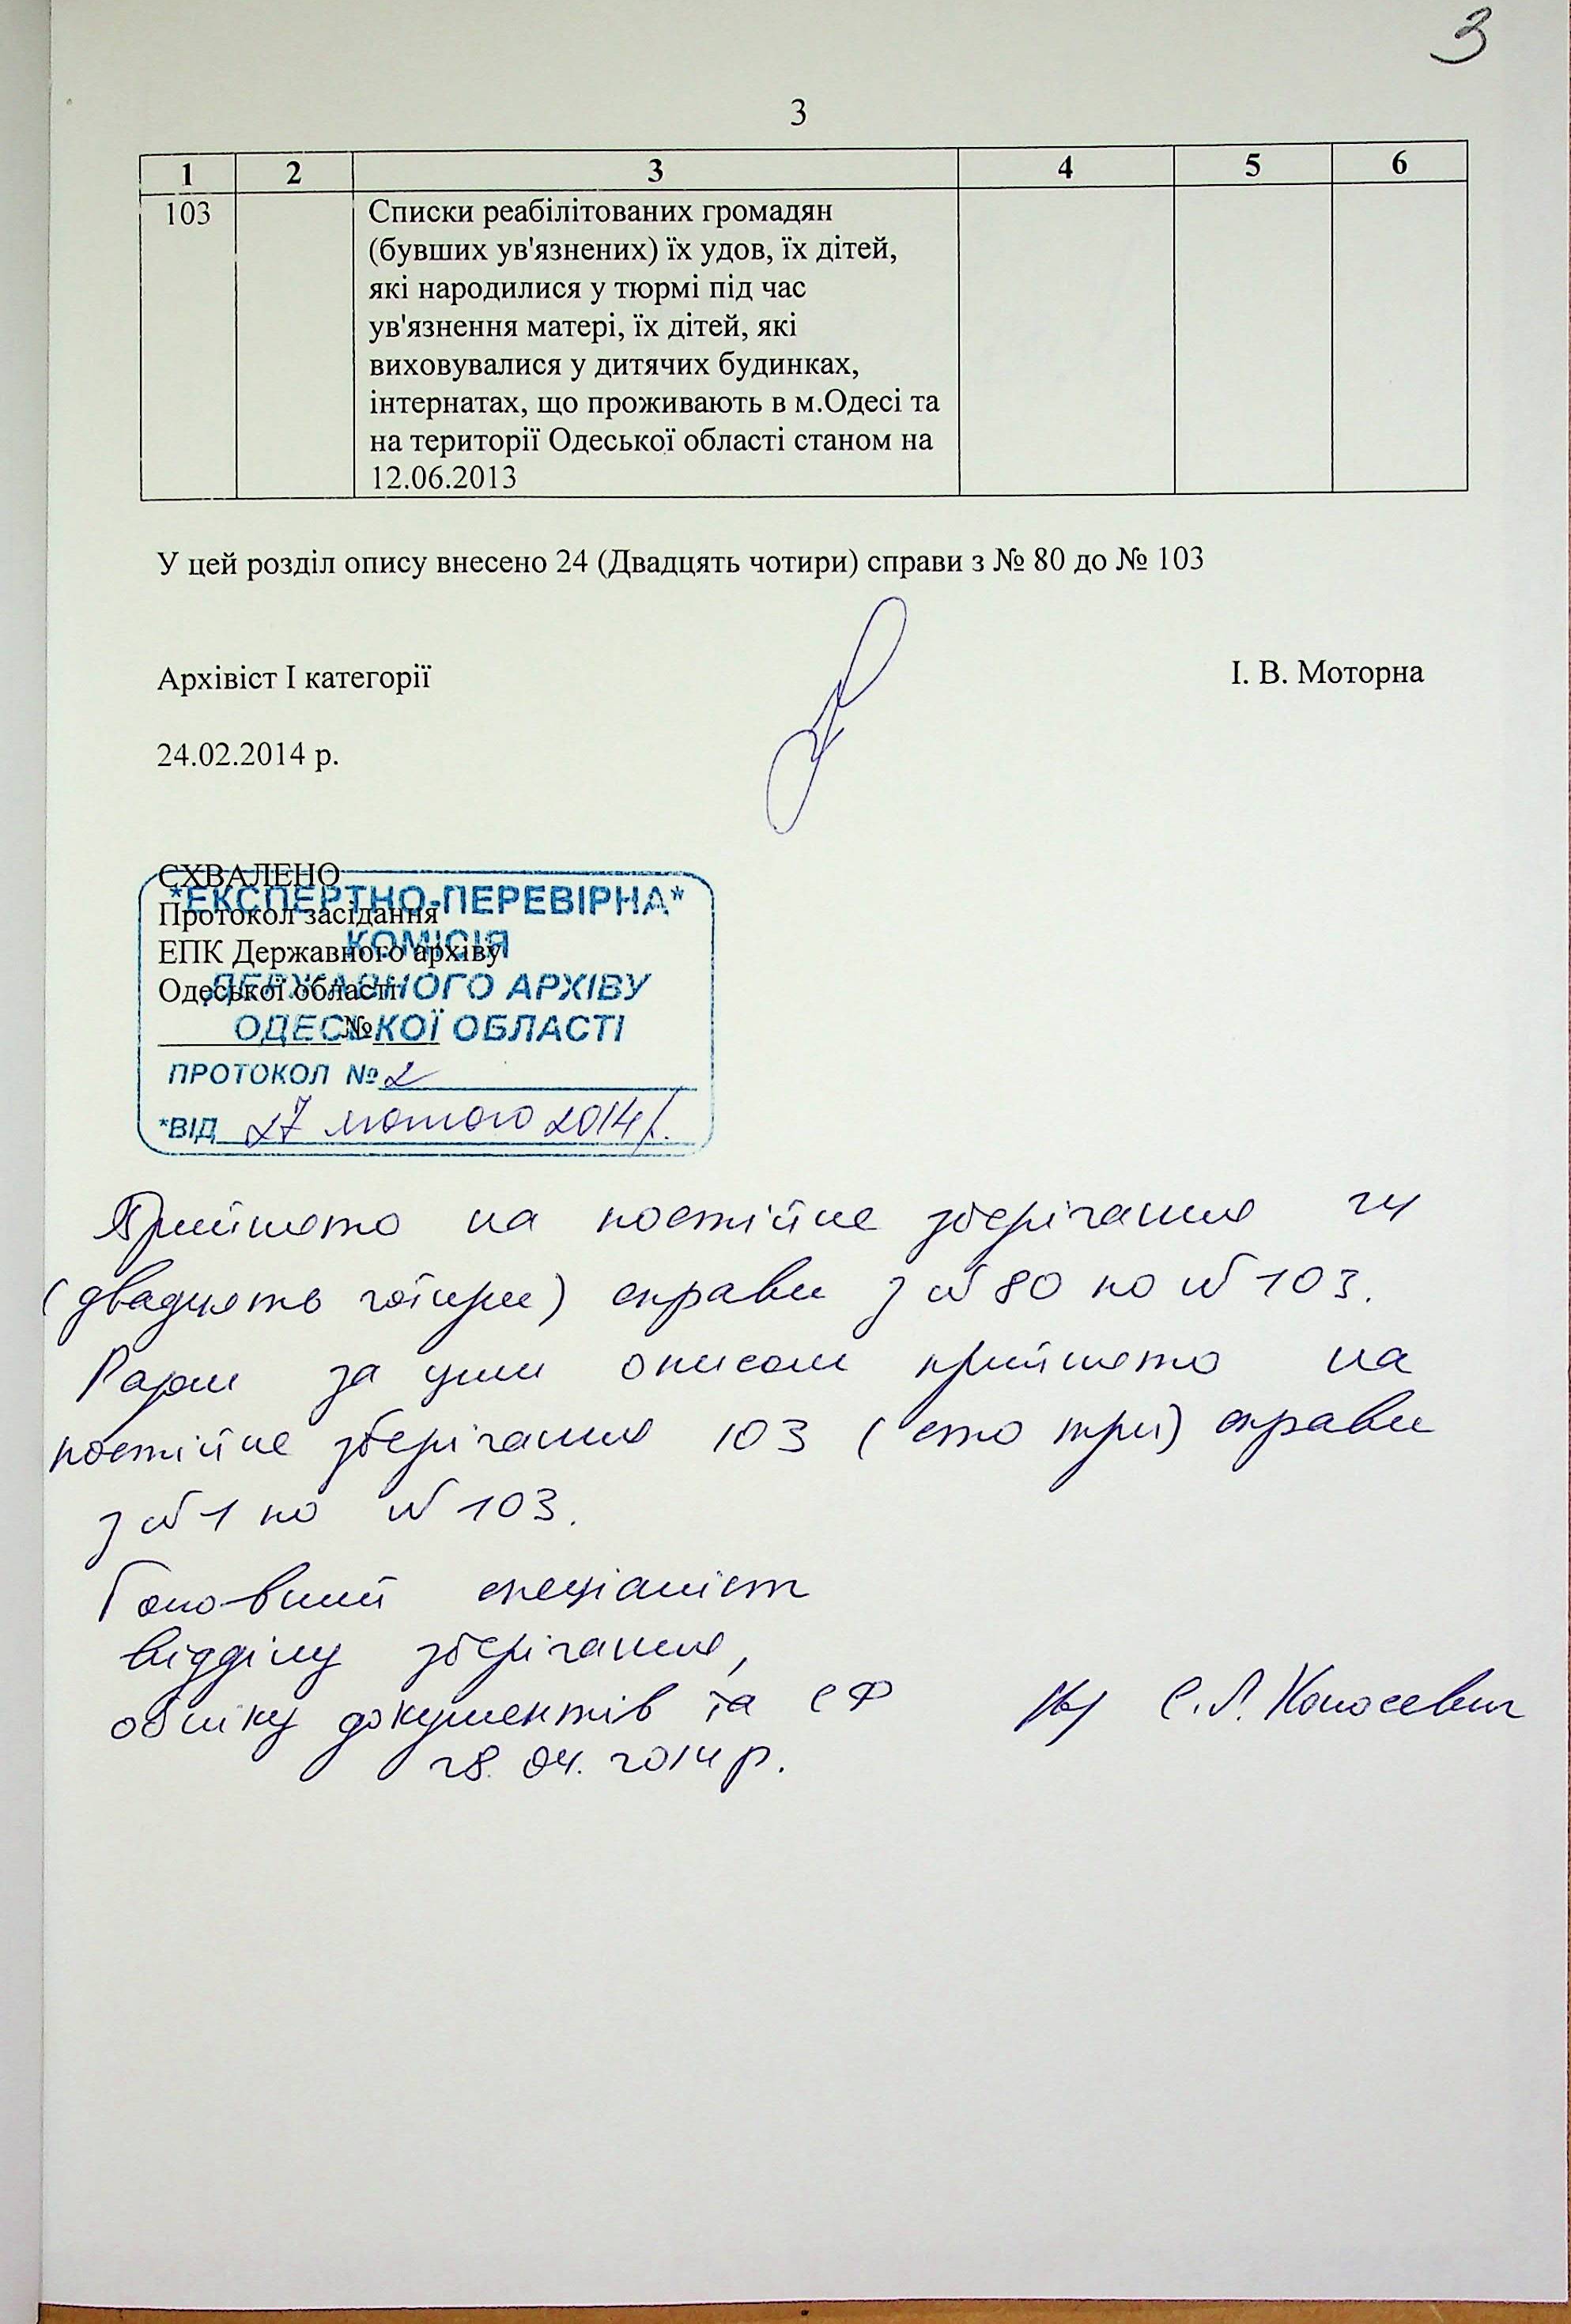 3
3
1 2 3 4 5 6
103 Списки реабілітованих громадян
(бувших ув'язнених) їх удов, їх дітей,
які народилися у тюрмі під час
ув'язнення матері, їх дітей, які
виховувалися у дитячих будинках,
інтернатах, що проживають в м.Одесі та
на території Одеської області станом на
12.06.2013
У цей розділ опису внесено 24 (Двадцять чотири) справи з № 80 до № 103
Архівіст І категорії І. В. Моторна
24.02.2014 р.
СХВАЛЕНО
Протокол засідання
ЕПК Державного архіву
Одеської області
№
*ЕКСПЕРТНО-ПЕРЕВІРНА*
КОМІСІЯ
ДЕРЖАВНОГО АРХІВУ
ОДЕСЬКОЇ ОБЛАСТІ
ПРОТОКОЛ № 2
*ВІД 27 лютого 2014 р.
Прийнято на постійне зберігання 24
(двадцять чотири) справи з № 80 по № 103.
Разом за цим описом прийнято на
постійне зберігання 103 (сто три) справи
з № 1 по № 103.
Головний спеціаліст
відділу зберігання,
обліку документів та СФ С.Л.
28.04.2014 р.